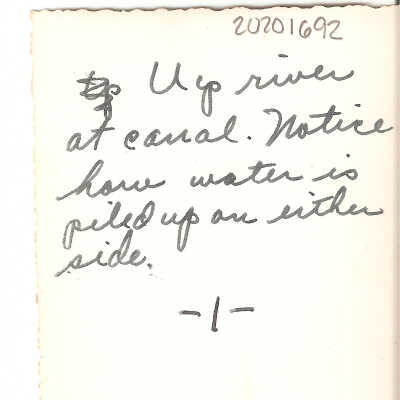 20201692
Up river
at canal. Notice
how water is
piled up on either
side.
-1-